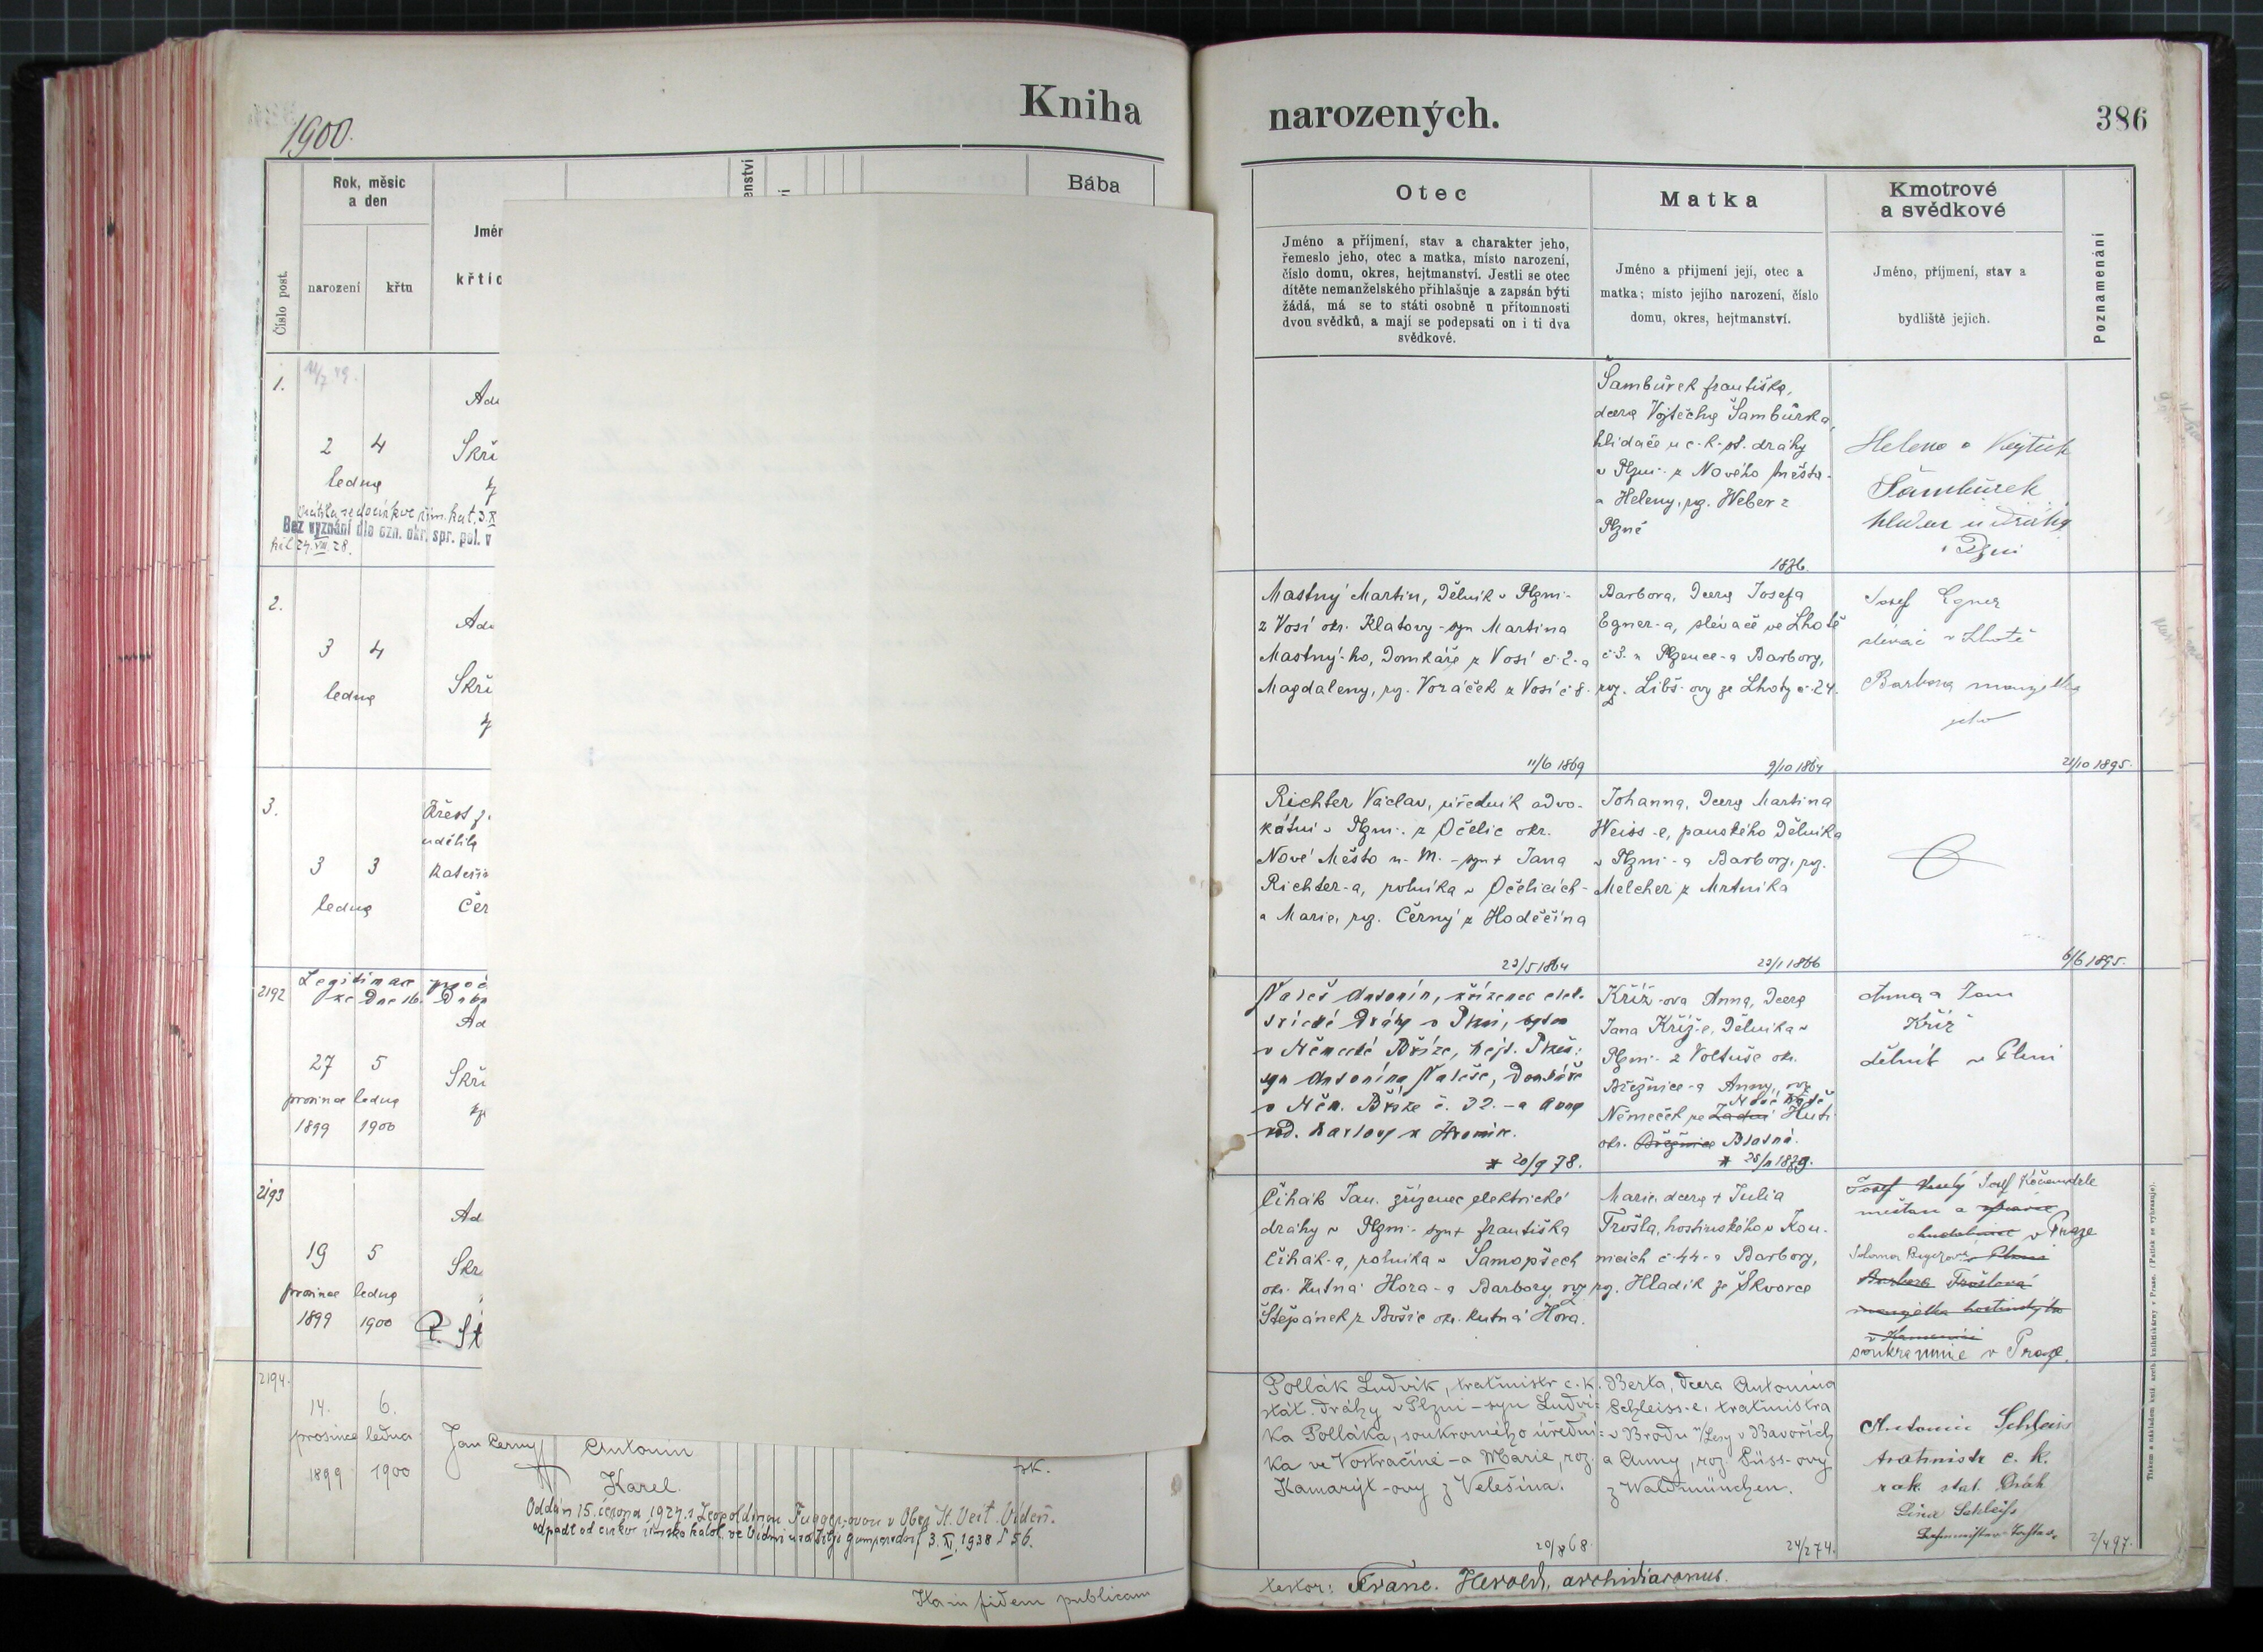 Kniha
1900.
Rok, měsíc
a den
Bába
Číslo post.
narození
křtu
1.
2 4
ledna
Bez vyznání dle ozn. okr. spr. pol. v
24. VIII. 28.
2.
3 4
ledna
3.
3 3
ledna
2192
27 5
prosince ledna
1899 1900
2193
19 5
prosince ledna
1899 1900
2194.
14. 6.
prosince ledna
1899 1900
Jan Černý
Antonín
Karel.
Oddán 15. června 1924 s Leopoldinou Fugger-ovou v Ober St. Veit. Vídeň.
3. XI. 1938 č 56.
Ita in fidem publicam
narozených.
386
Otec
Jméno a příjmení, stav a charakter jeho,
řemeslo jeho, otec a matka, místo narození,
číslo domu, okres, hejtmanství. Jestli se otec
dítěte nemanželského přihlašuje a zapsán býti
žádá, má se to státi osobně u přítomnosti
dvou svědků, a mají se podepsati on i ti dva
svědkové.
Matka
Jméno a příjmení její, otec a
matka; místo jejího narození, číslo
domu, okres, hejtmanství.
Kmotrové
a svědkové
Jméno, příjmení, stav a
bydliště jejich.
Poznamenání
Šambůrek Františka,
dcera Vojtěcha Šambůrka,
hlídače u c. k. st. dráhy
v Plzni z Nového Města
a Heleny, roz. Weber z
Plzně
1876.
Helena a Vojtěch
Šambůrek
hlídač u dráhy
v Plzni
Mastný Martin, dělník v Plzni
z Vosí okr. Klatovy - syn Martina
Mastný-ho, domkáře z Vosí č. 2. a
Magdaleny, roz. Voráček z Vosí č 8.
11/6 1869
Barbora, dcera Josefa
Egner-a, slévače ve Lhotě
č 3. u Plzence a Barbory,
roz. Libš-ovy ze Lhoty č. 24.
9/10 1864
Josef Egner
slévač v Lhotě
Barbora manželka
jeho
21/10 1895.
Richter Václav, úředník advo-
kátní v Plzni. z Očelic okr.
Nové Město n. M. - syn † Jana
Richter-a, rolníka v Očelicích -
a Marie, roz. Černý z Hoděčína
22/5 1864
Johanna, dcera Martina
Weiss-e, panského dělníka
v Plzni - a Barbory, roz.
Melcher z Mrtníka
22/1 1866
6/6 1895.
Valeš Antonín, zřízenec elek-
trické dráhy v Plzni,
v Německé Bříze, hejt. Plzeň:
syn Antonína Valeše, domkáře
v Něm. Bříze č. 32. - a Anny
rod. Karlovy z Hromic.
* 20/9 78.
Kříž-ova Anna, dcera
Jana Kříž-e, dělníka v
Plzni - z Voltuše okr.
Březnice - a Anny, roz.
Němeček ze Zadní Huti
okr. Březnice Blatná.
* 28/11 1879.
Anna a Jan
Kříž
dělník v Plzni
Čihák Jan, zřízenec elektrické
dráhy v Plzni - syn † Františka
Čihák-a, rolníka v Samopšech
okr. Kutná Hora - a Barbory, roz.
Štěpánek z Bošic okr. Kutná Hora.
Marie, dcera † Julia
Trošla, hostinského v Kou-
nicích č 44 - a Barbory,
roz. Hladík ze Škvorce
v Praze
Barbora Trošlová
manželka hostinského
soukromnice v Praze.
Pollák Ludvík, traťmistr c. k.
stát. dráhy v Plzni - syn Ludví-
ka Polláka, soukromého úřední-
ka ve Vostračíně - a Marie, roz.
Kamarýt-ovy z Velešína.
20/8 68.
Berta, dcera Antonína
Schleiss-e, traťmistra
v Brodu n/Lesy v Bavořích
a Anny, roz. Süss-ovy
z Waldmünchen.
24/2 74.
Antonín Schleiss
traťmistr c. k.
rak. stát. drah
Lina Schleiss
2/4 97.
Franc. Herold, archidiaconus.